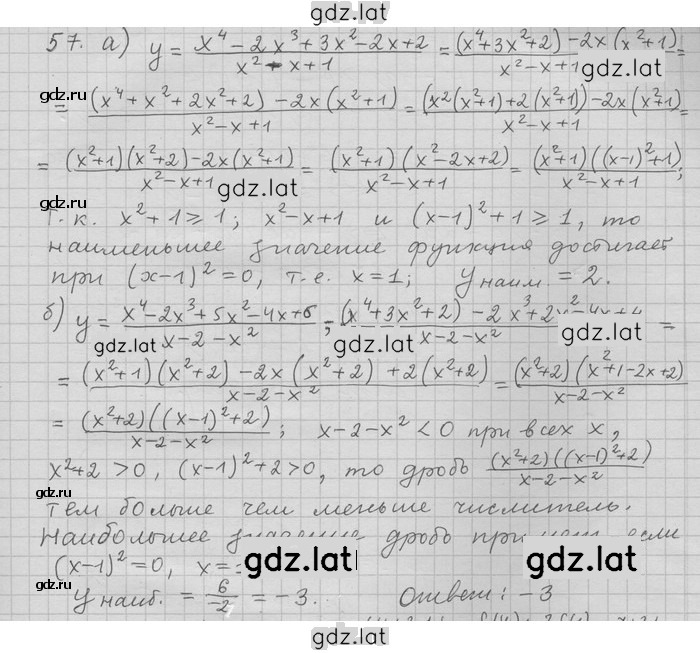 gdz.lat
57. а) y = (x⁴ - 2x³ + 3x² - 2x + 2)/(x² - x + 1) = ((x⁴ + 3x² + 2) - 2x(x² + 1))/(x² - x + 1) =
gdz.ru gdz.lat
= ((x⁴ + x² + 2x² + 2) - 2x(x² + 1))/(x² - x + 1) = ((x²(x² + 1) + 2(x² + 1)) - 2x(x² + 1))/(x² - x + 1) =
= ((x² + 1)(x² + 2) - 2x(x² + 1))/(x² - x + 1) = ((x² + 1)(x² - 2x + 2))/(x² - x + 1) = ((x² + 1)((x - 1)² + 1))/(x² - x + 1);
gdz.lat
Т.к. x² + 1 ⩾ 1; x² - x + 1 и (x - 1)² + 1 ⩾ 1, то
наименьшее значение функция достигает
gdz.ru
при (x - 1)² = 0, т.е. x = 1; y наим. = 2.
б) y = (x⁴ - 2x³ + 5x² - 4x + 6)/(x - 2 - x²); ((x⁴ + 3x² + 2) - 2x³ + 2x² - 4x + 4)/(x - 2 - x²) =
gdz.lat gdz.lat gdz.lat
= ((x² + 1)(x² + 2) - 2x(x² + 2) + 2(x² + 2))/(x - 2 - x²) = ((x² + 2)(x² + 1 - 2x + 2))/(x - 2 - x²)
= ((x² + 2)((x - 1)² + 2))/(x - 2 - x²); x - 2 - x² < 0 при всех x,
x² + 2 > 0, (x - 1)² + 2 > 0, то дробь ((x² + 2)((x - 1)² + 2))/(x - 2 - x²)
gdz.ru
тем больше чем меньше числитель.
Наибольшее дробь при если
(x - 1)² = 0, x =
gdz.lat gdz.lat
y наиб. = 6/-2 = -3. Ответ: -3
gdz.lat